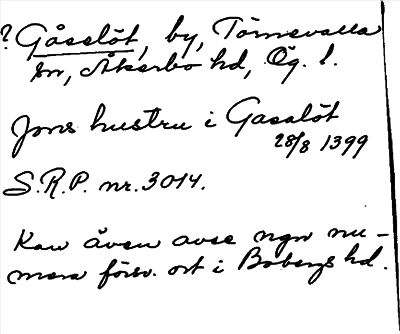 ? Gåselöt, by, Törnevalla
sn, Åkerbo hd, Ög. l.
Jons hustru i Gasalöt
28/8 1399
S.R.P. nr. 3014.
Kan även avse ngn nu-
mera försv. ort i Bobergs hd.